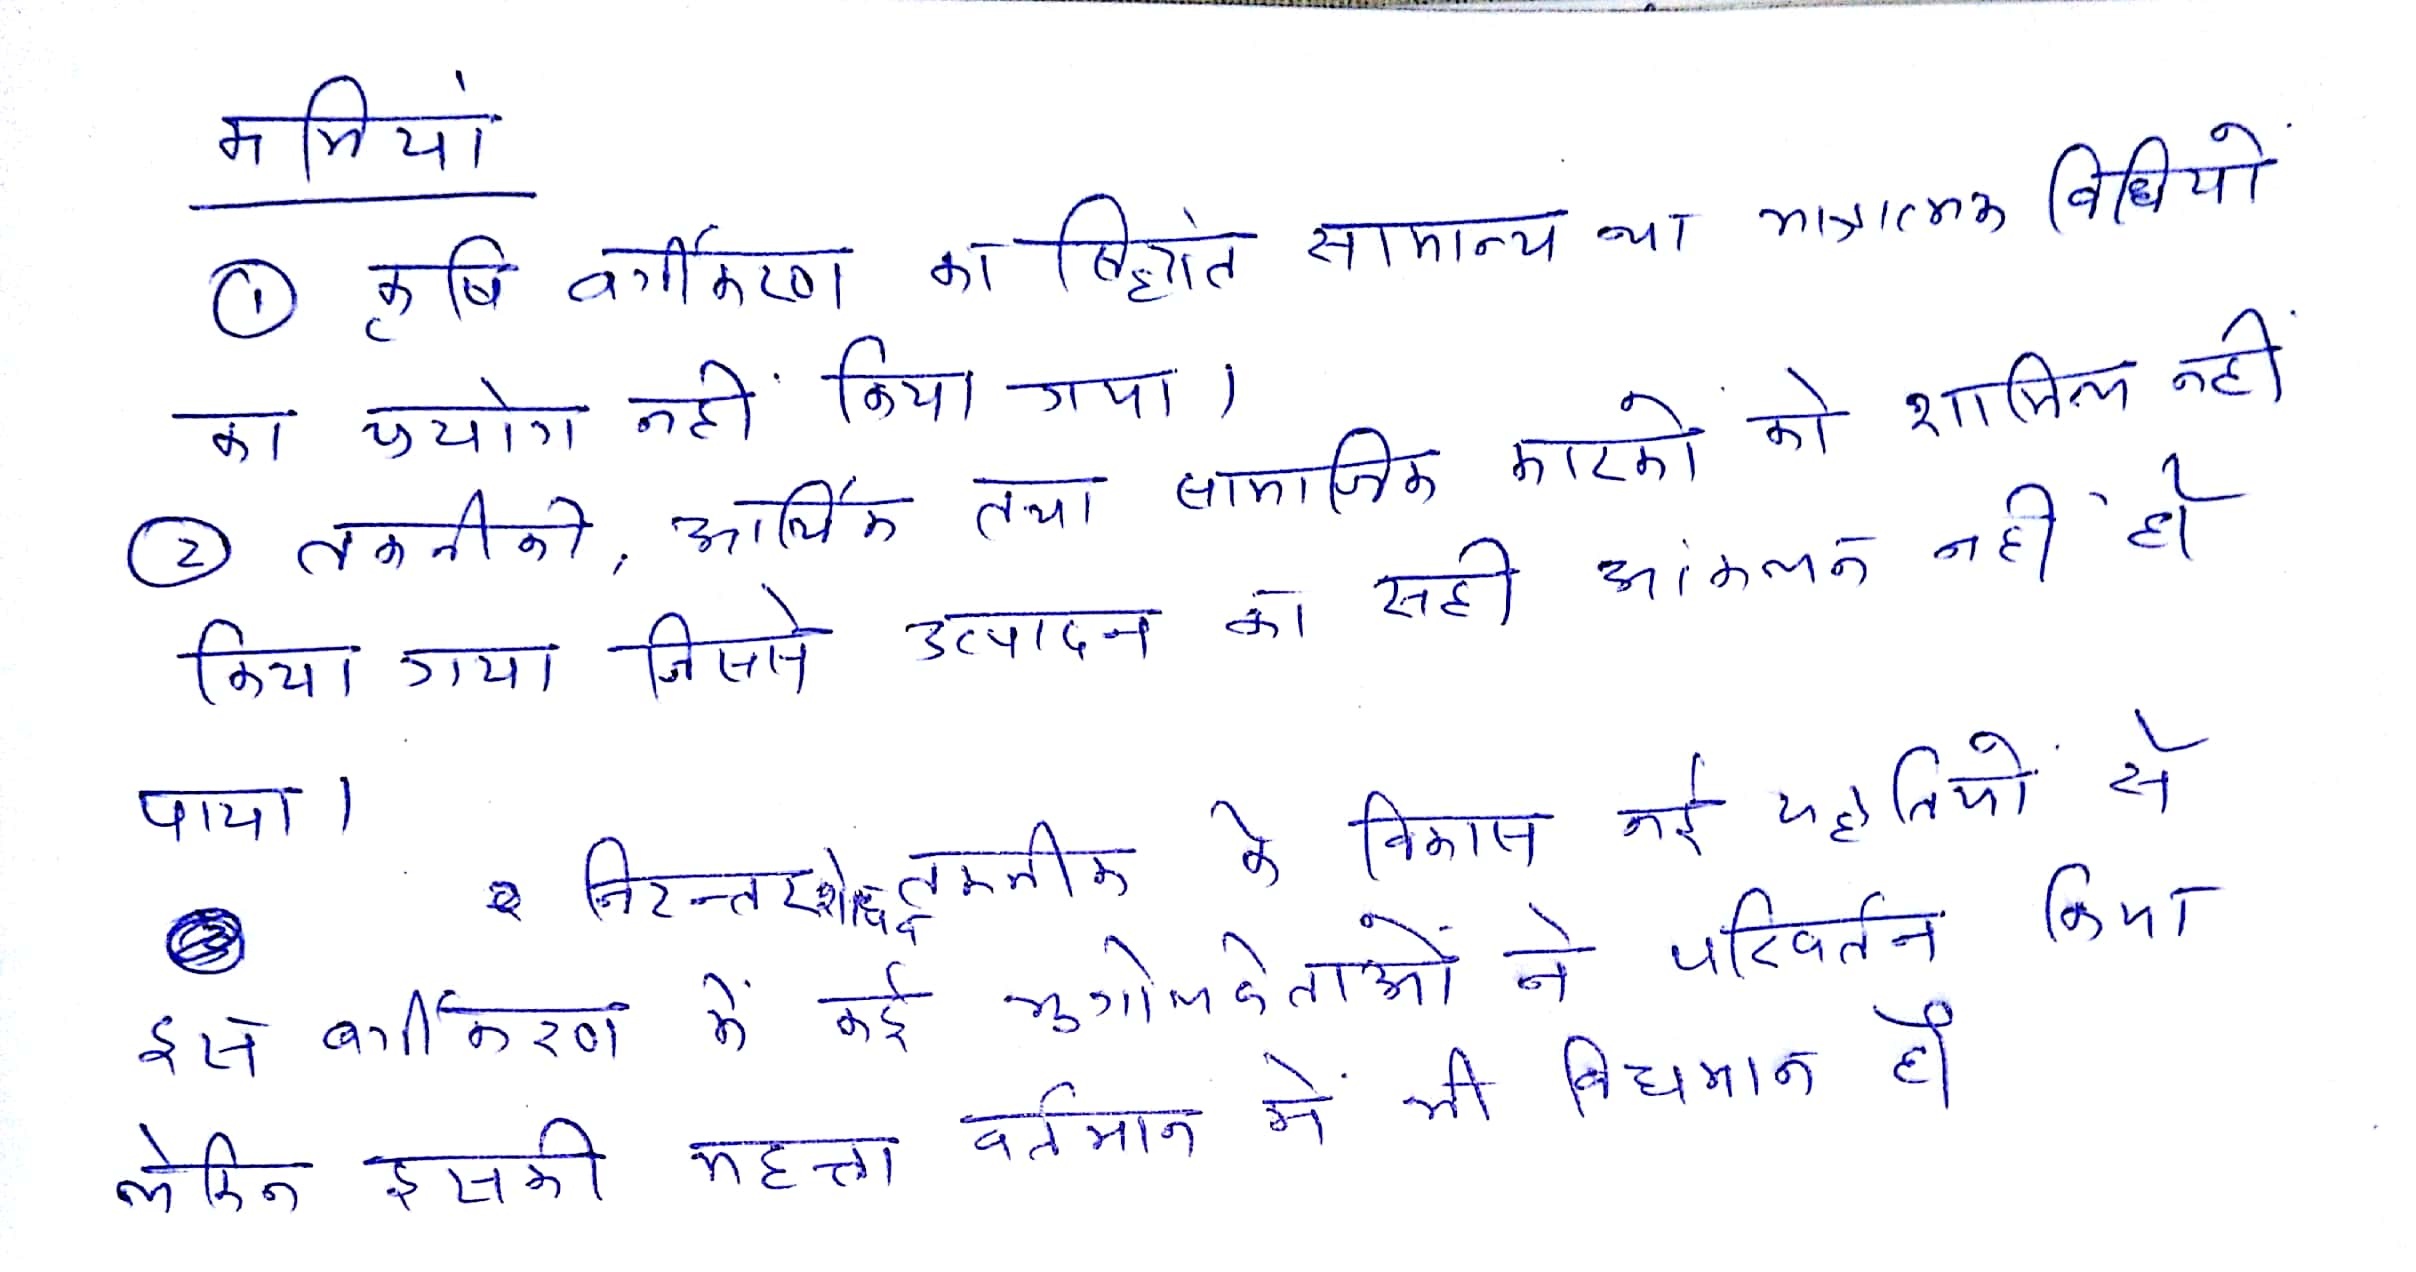 कमियां
① कृषि वर्गीकरण का सिद्धांत सामान्य था मात्रात्मक विधियों
का प्रयोग नहीं किया गया।
② तकनीकी, आर्थिक तथा सामाजिक कारकों को शामिल नहीं
किया गया जिससे उत्पादन का सही आंकलन नहीं हो
पाया।
निरन्तर शोध तकनीक के विकास नई पद्धतियों से
इस वर्गीकरण में कई भुगोलवेताओं ने परिवर्तन किया
लेकिन इसकी महत्ता वर्तमान में भी विद्यमान है